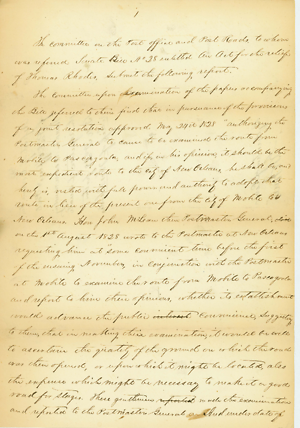 1
The committee on the Post office and Post Roads to whom
was referred Senate Bill No 38 entitled An Act for the relief
of Thomas Rhodes. Submit the following report.
The Committee upon examination of the papers accompanying
the Bill referred to them find that in pursuance of the provisions
of a joint resolution approved May 24th 1828 "authorizing the
Postmaster General to cause to be examined the route from
Mobile to Pascagoula, and if in his opinion, it should be the
most expedient route to the City of New Orleans he shall be, and
he is vested with full power and authority to adopt that
route in lieu of the present one from the City of Mobile to
New Orleans Hon John McLean then Postmaster General,
on the 1st August 1828 wrote to the Postmaster at New Orleans
requesting him at some convenient time before the first
of the ensuing November in conjunction with the Postmaster
at Mobile to examine the route from Mobile to Pascagoula
and report to him their opinions, whether its establishment
would advance the public interest convenience, suggesting
to them, that in making their examination, it would be well
to ascertain the quality of the ground on which the road
was then opened, or upon which it might be located, also
the expense which might be necessary to make it a good
road for stages. These gentlemen reported made the examination
and reported to the Postmaster General and under date of